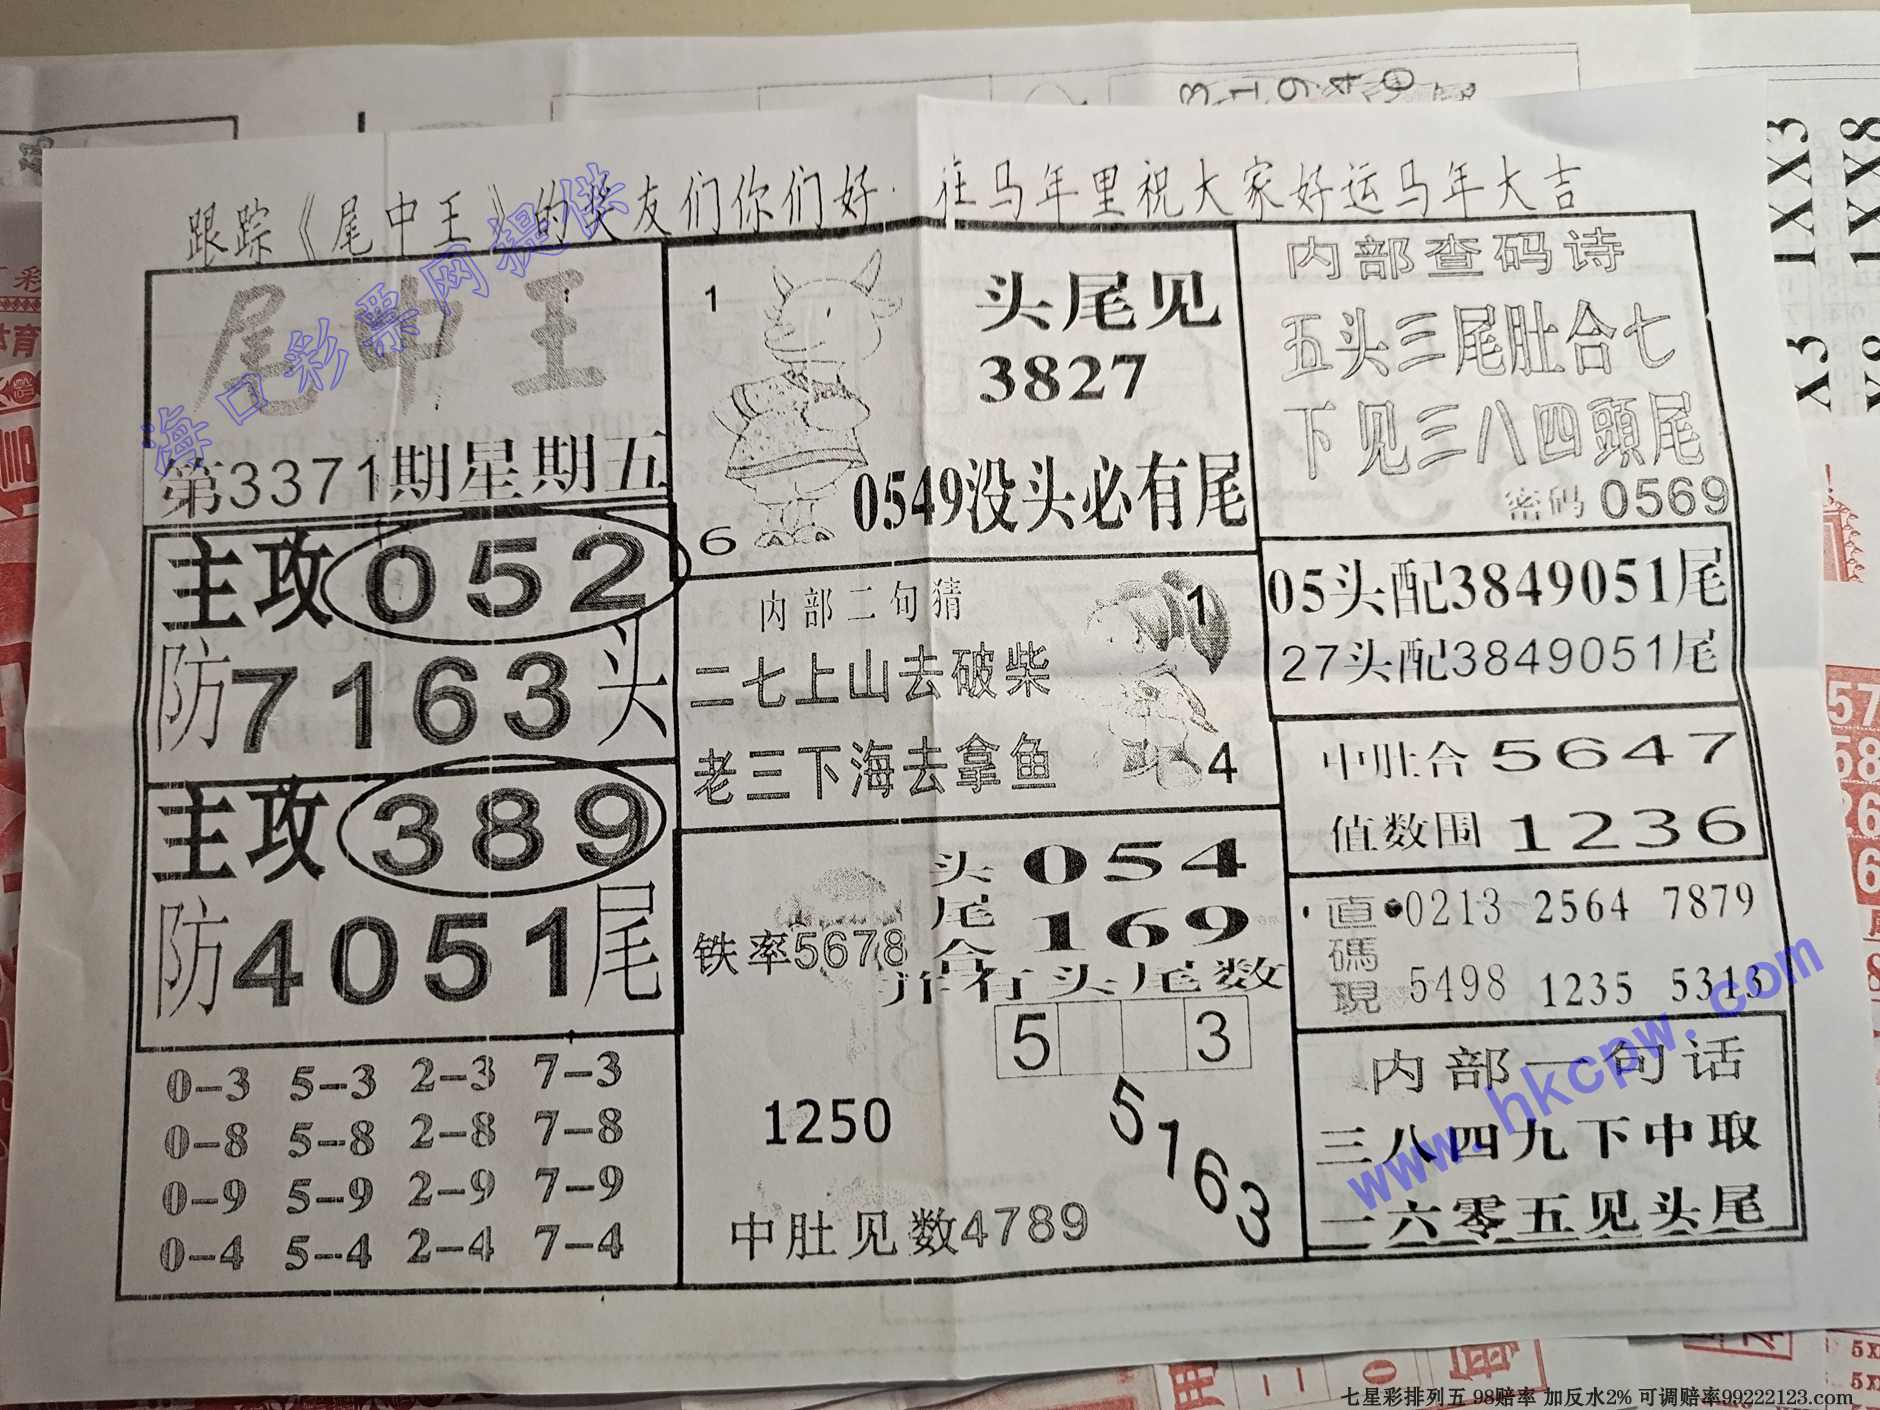 跟踪《尾中王》的奖友们你们好.在马年里祝大家好运马年大吉
尾中王
第3371期星期五
主攻052
防7163头
主攻389
防4051尾
0-3 5-3 2-3 7-3
0-8 5-8 2-8 7-8
0-9 5-9 2-9 7-9
0-4 5-4 2-4 7-4
1
6
头尾见
3827
0549没头必有尾
内部二句猜
二七上山去破柴
老三下海去拿鱼
1
4
头054
尾
合169
铁率5678
并有头尾数
5 3
1250
5163
中肚见数4789
内部查码诗
五头三尾肚合七
下见三八四頭尾
密码0569
05头配3849051尾
27头配3849051尾
中肚合5647
值数围1236
直碼現
0213 2564 7879
5498 1235 5313
内部一句话
三八四九下中取
一六零五见头尾
海口彩票网提供
www.hkcpw.com
31940
1XX3
1XX8
X3
X8
57
58
26
6
5X
七星彩排列五 98赔率 加反水2% 可调赔率99222123.com